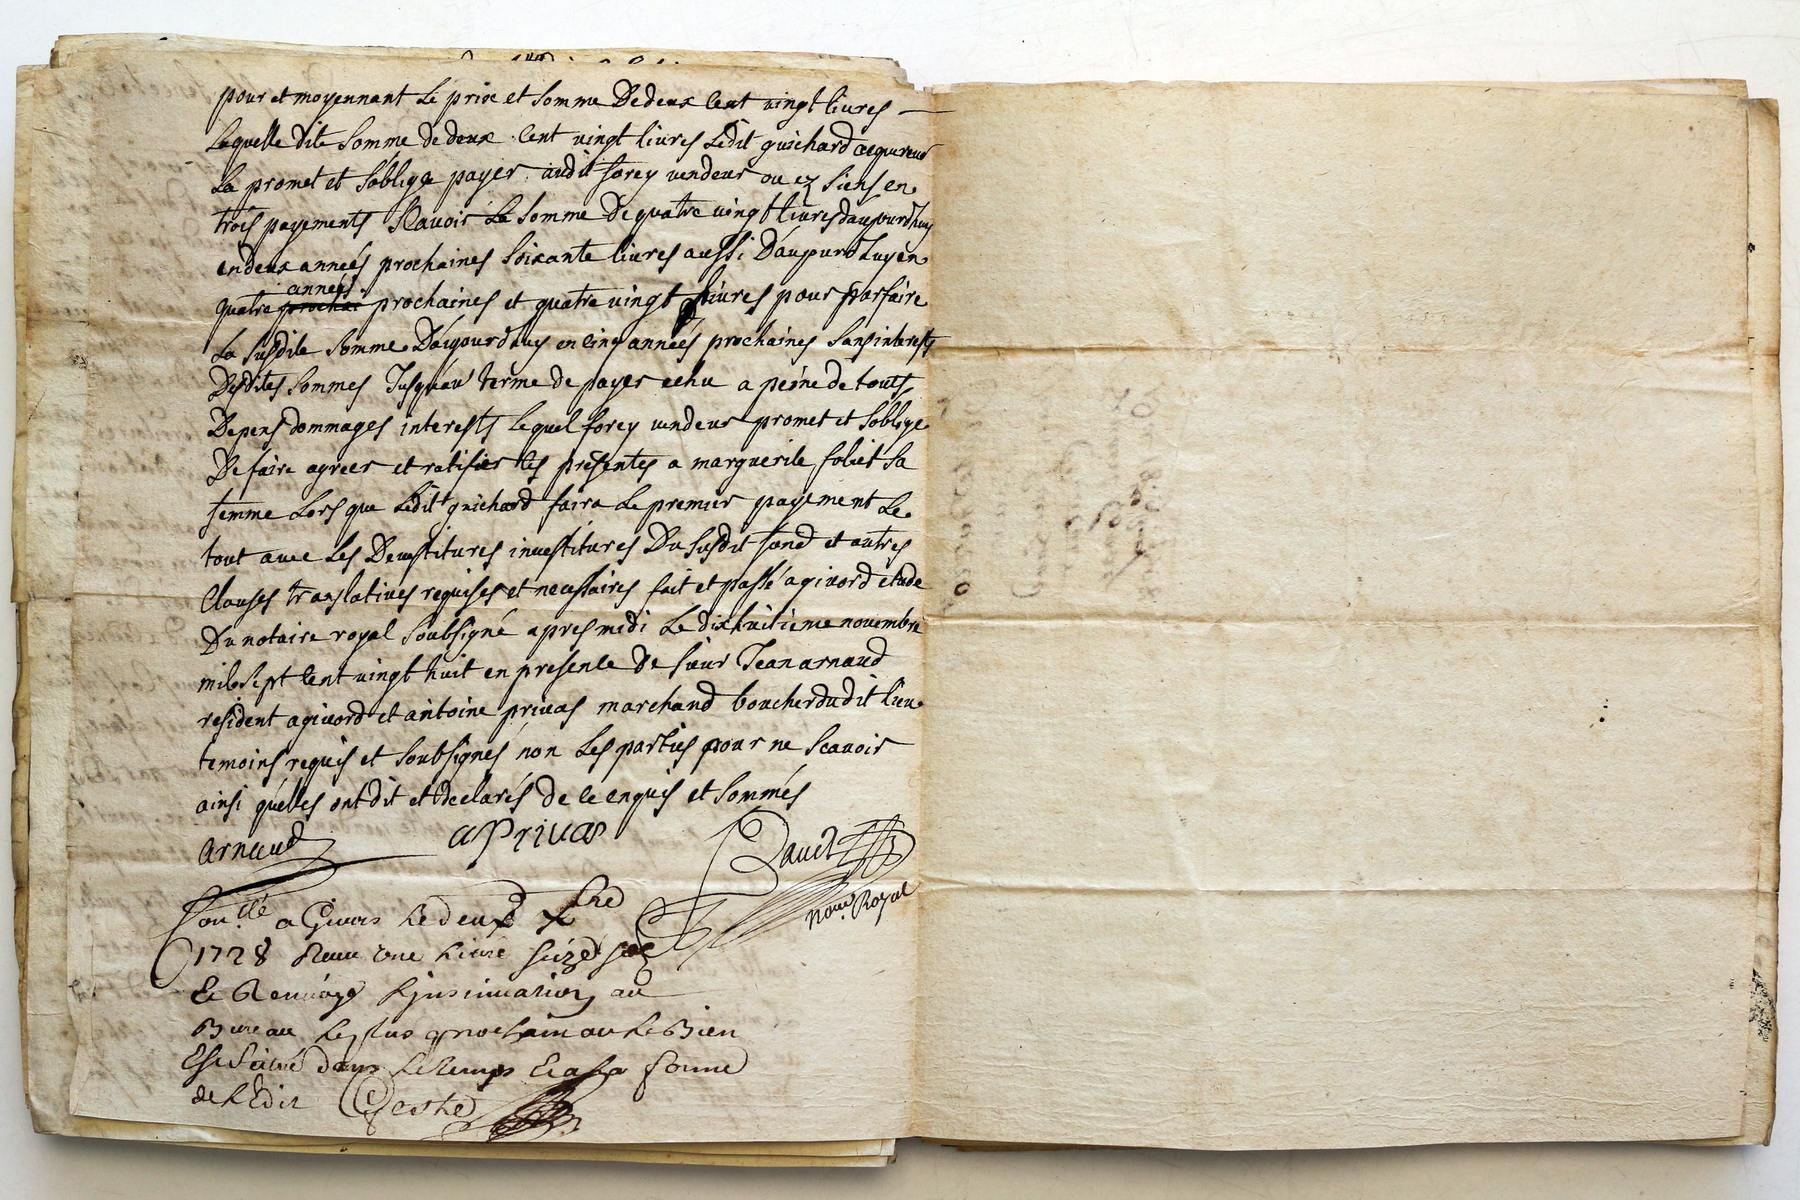 pour et moyennant le prix et somme de deux cent vingt livres
laquelle dite somme de deux cent vingt livres ledit guichard acquereur
la promet et soblige payer audit forey vendeur ou ez siens en
trois payements scavoir la somme de quatre vingt livres daujourdhuy
en deux années prochaines soixante livres aussi daujourdhuy en
années
quatre prochaines et quatre vingt livres pour parfaire
la susdite somme daujourdhuy en cinq années prochaines sans interests
desdites sommes jusquau terme de payer echu a peine de touts
depens dommages interests lequel forey vendeur promet et soblige
de faire agreer et ratifier les presentes a marguerite foliet sa
femme lors que ledit guichard faira le premier payement le
tout avec les devestitures investitures du susdit fond et autres
clauses translatives requises et necessaires fait et passé a givord etude
du notaire royal soubsigné apres midi le dixhuitieme novembre
mil sept cent vingt huit en presence de sieur Jean arnaud
resident a givord et antoine privas marchand boucher dudit lieu
temoins requis et soubsignés non les parties pour ne scavoir
ainsi quelles ont dit et declarés de ce enquis et sommés
arnaud a Privas
no.re Royal
Con.llé a Givors le deux xbre
1728 Receu une livre seize sols
et Renvoyé linsinuation au
Bureau le plus prochain ou le Bien
Est scitué dans le temps et a la forme
de lEdit